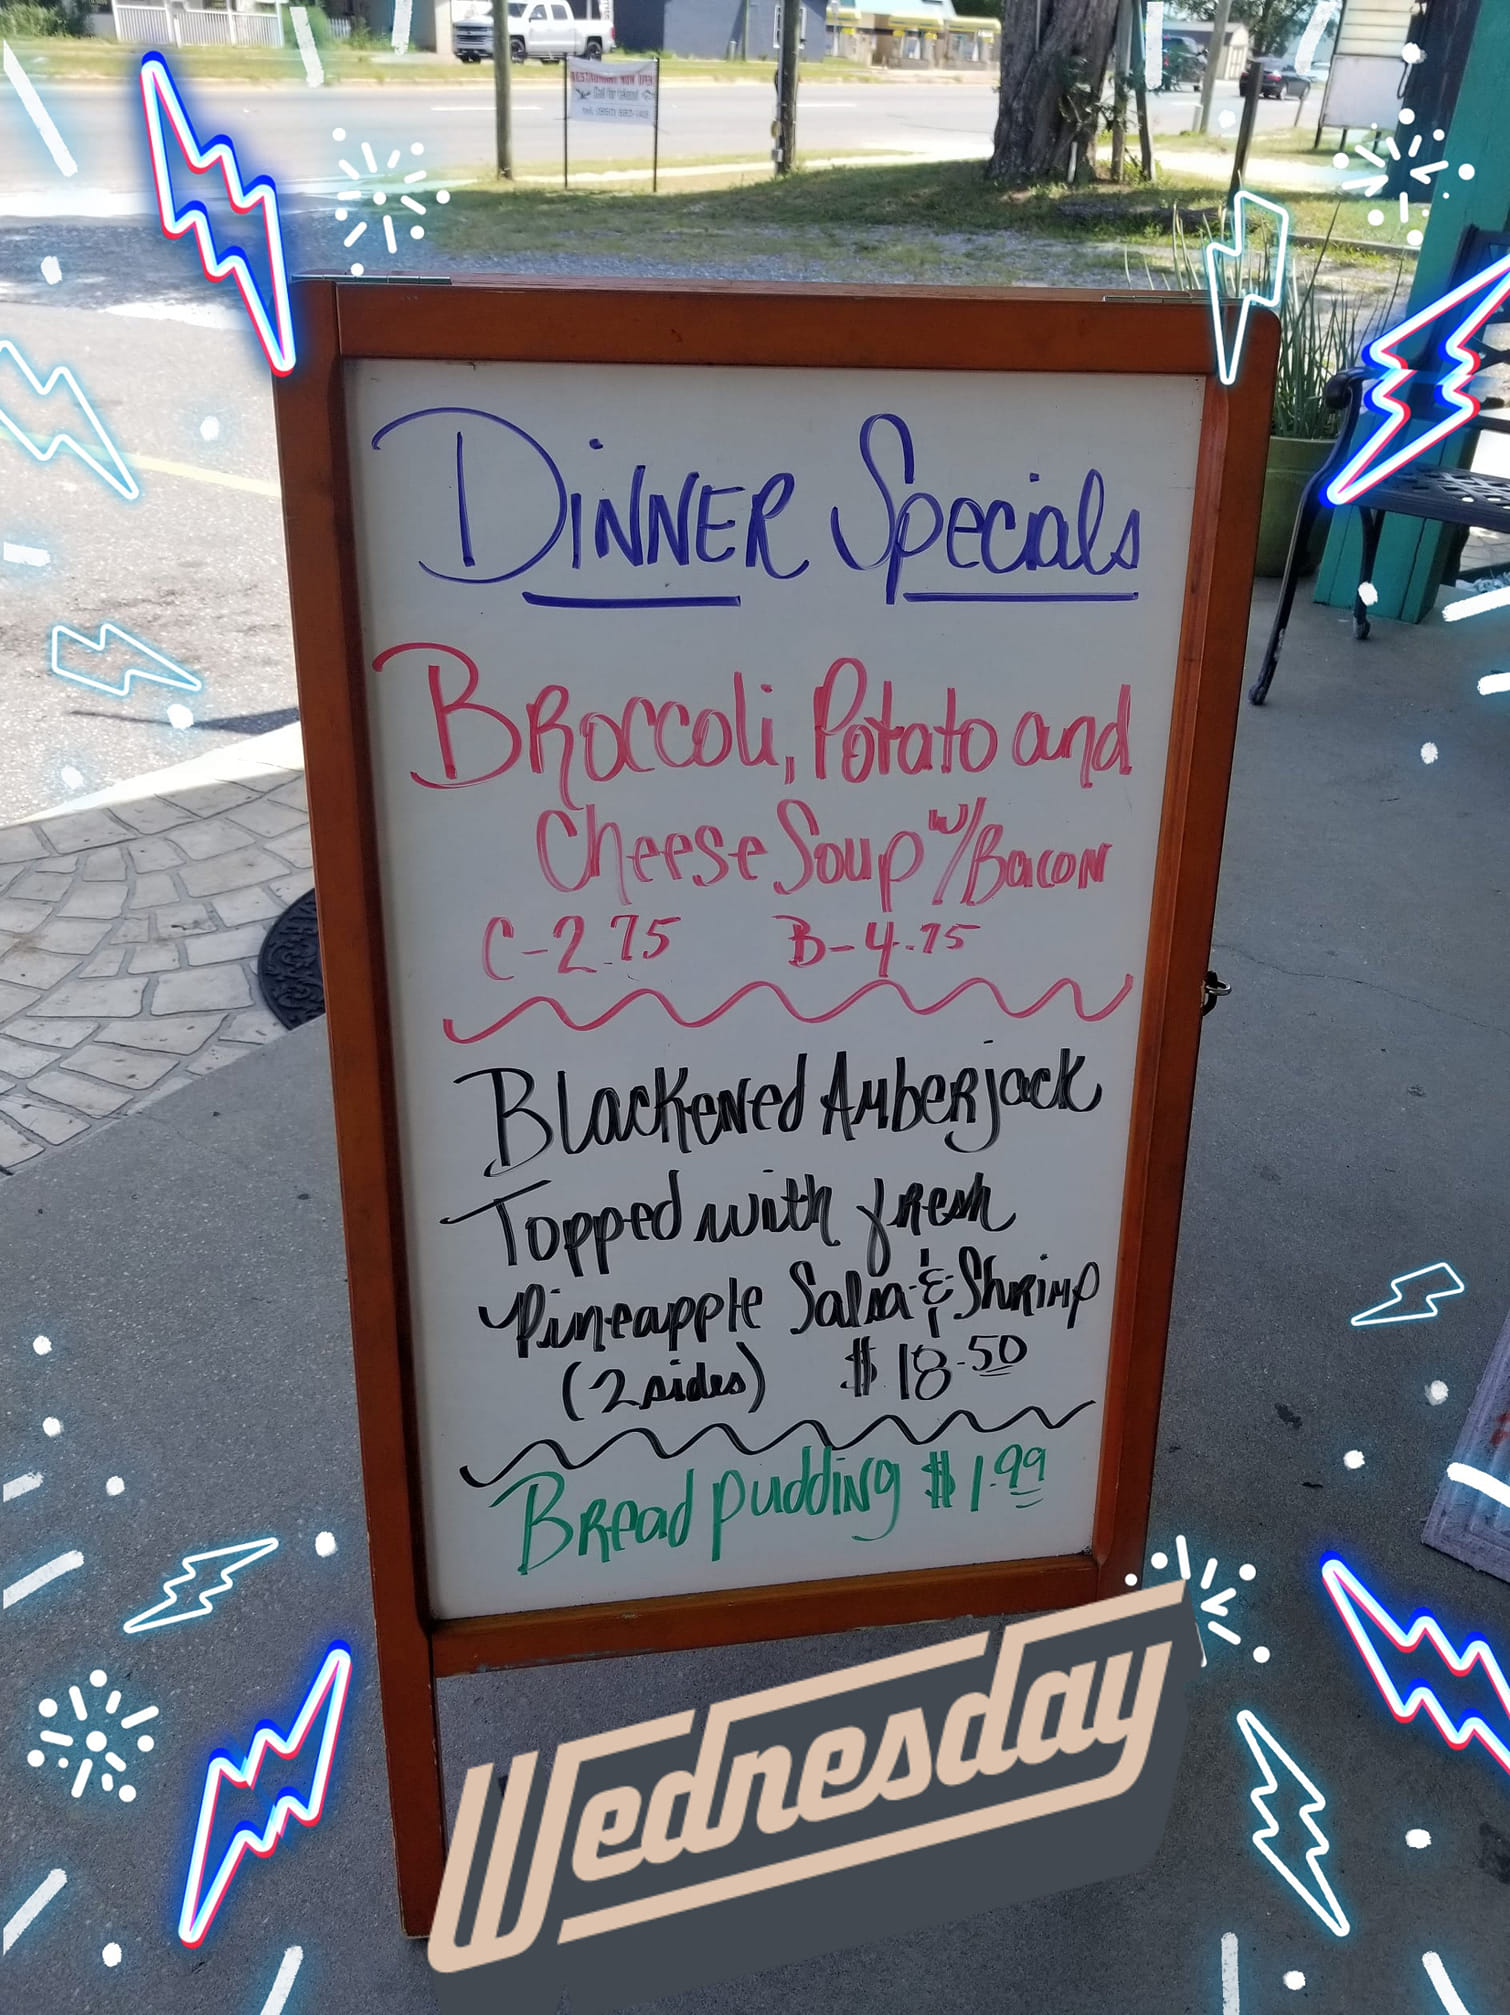 RESTAURANT NOW OPEN
Call for takeout
DINNER Specials
BROCCOLi, Potato and
Cheese Soup w/Bacon
C-2.75 B-4.75
Blackened Amberjack
Topped with fresh
Pineapple Salsa & Shrimp
(2 sides) $18.50
Bread pudding $1.99
Wednesday